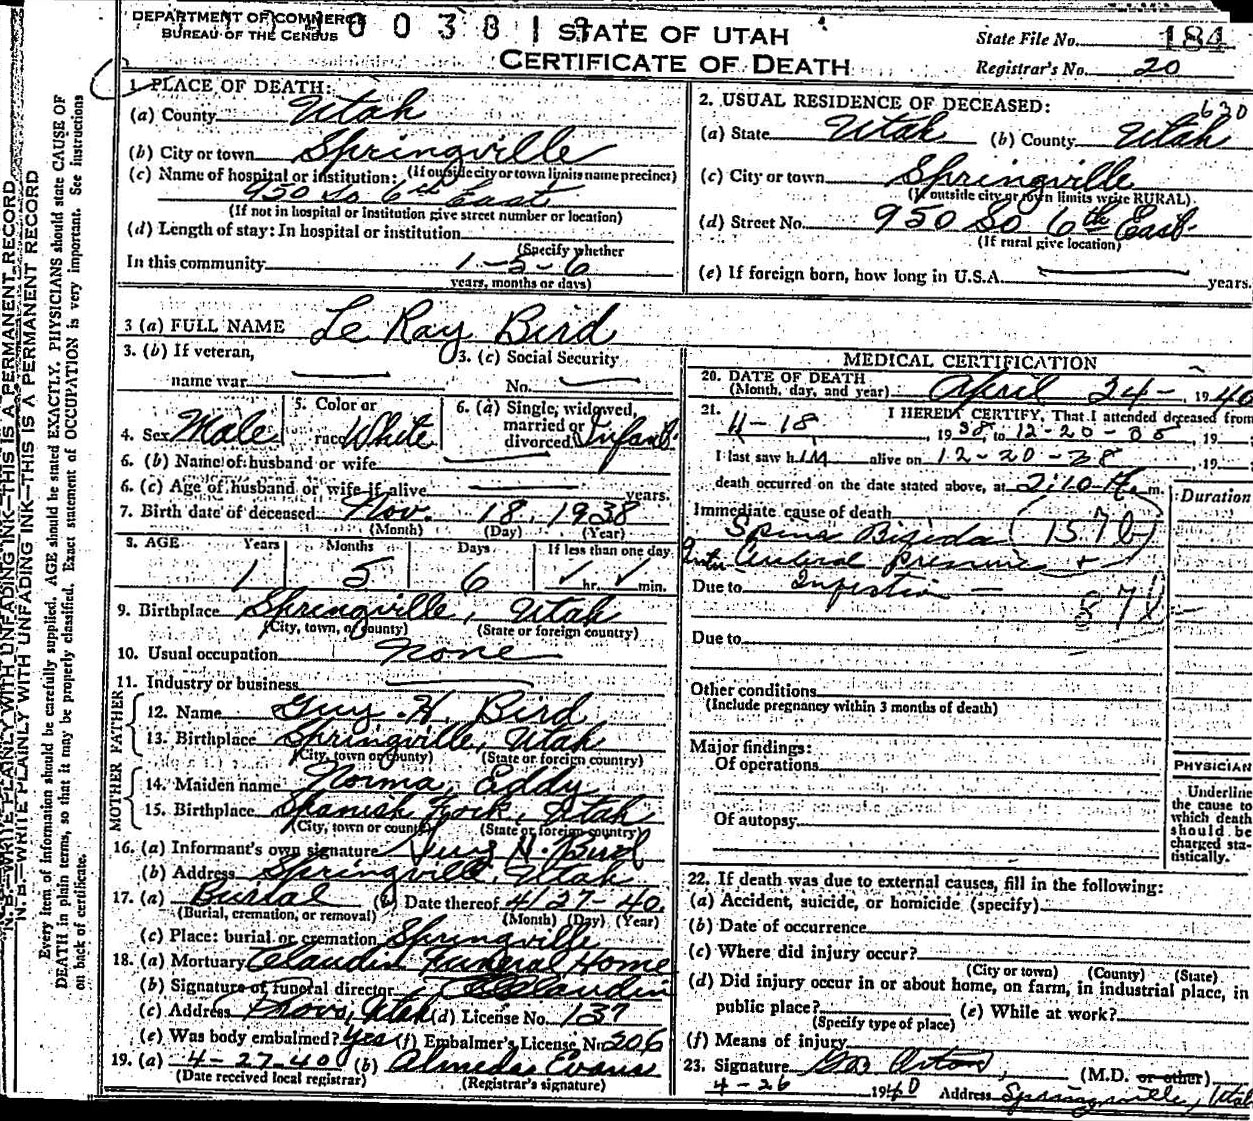 DEPARTMENT OF COMMERCE
BUREAU OF THE CENSUS
STATE OF UTAH
CERTIFICATE OF DEATH
State File No. 184
Registrar's No. 20
1. PLACE OF DEATH:
(a) County Utah
(b) City or town Springville
(c) Name of hospital or institution: (If outside city or town limits name precinct)
950 So 6th East
(If not in hospital or institution give street number or location)
(d) Length of stay: In hospital or institution
(Specify whether
In this community 1-5-6
years, months or days)
2. USUAL RESIDENCE OF DECEASED: 630
(a) State Utah (b) County Utah
(c) City or town Springville
(If outside city or town limits write RURAL)
(d) Street No. 950 So 6th East
(If rural give location)
(e) If foreign born, how long in U.S.A. years.
3 (a) FULL NAME Le Ray Bird
3. (b) If veteran,
name war
3. (c) Social Security
No.
4. Sex Male
5. Color or
race White
6. (a) Single, widowed,
married or
divorced Infant
6. (b) Name of husband or wife
6. (c) Age of husband or wife if alive years.
7. Birth date of deceased Nov. 18, 1938
(Month) (Day) (Year)
8. AGE Years Months Days If less than one day
1 5 6 hr. min.
9. Birthplace Springville, Utah
(City, town, or county) (State or foreign country)
10. Usual occupation None
11. Industry or business
FATHER
12. Name Guy H. Bird
13. Birthplace Springville, Utah
(City, town or county) (State or foreign country)
MOTHER
14. Maiden name Norma Eddy
15. Birthplace Spanish Fork, Utah
(City, town or county) (State or foreign country)
16. (a) Informant's own signature Guy H. Bird
(b) Address Springville, Utah
17. (a) Burial (b) Date thereof 4/27-40
(Burial, cremation, or removal) (Month) (Day) (Year)
(c) Place: burial or cremation Springville
18. (a) Mortuary Claudin Funeral Home
(b) Signature of funeral director Claudin
(c) Address Provo, Utah (d) License No. 137
(e) Was body embalmed? Yes (f) Embalmer's License No. 206
19. (a) 4-27-40 (b) Almeda Evans
(Date received local registrar) (Registrar's signature)
MEDICAL CERTIFICATION
20. DATE OF DEATH
(Month, day, and year) April 24- , 1940
21. I HEREBY CERTIFY, That I attended deceased from
11-18 , 1938, to 12-20-38 , 19
I last saw him alive on 12-20-38 , 19
death occurred on the date stated above, at 2:10 A. m.
Duration
Immediate cause of death
Spina Bifida 157b
Pressure +
Due to
Due to
Other conditions
(Include pregnancy within 3 months of death)
Major findings:
Of operations
Of autopsy
PHYSICIAN
Underline
the cause to
which death
should be
charged sta-
tistically.
22. If death was due to external causes, fill in the following:
(a) Accident, suicide, or homicide (specify)
(b) Date of occurrence
(c) Where did injury occur?
(City or town) (County) (State)
(d) Did injury occur in or about home, on farm, in industrial place, in
public place? (e) While at work?
(Specify type of place)
(f) Means of injury
23. Signature Geo Orton, (M.D. or other)
4-26 1940 Address Springville, Utah
N. B.—WRITE PLAINLY WITH UNFADING INK—THIS IS A PERMANENT RECORD
N. B.—WRITE PLAINLY WITH UNFADING INK—THIS IS A PERMANENT RECORD
Every item of information should be carefully supplied. AGE should be stated EXACTLY. PHYSICIANS should state CAUSE OF
DEATH in plain terms, so that it may be properly classified. Exact statement of OCCUPATION is very important. See instructions
on back of certificate.